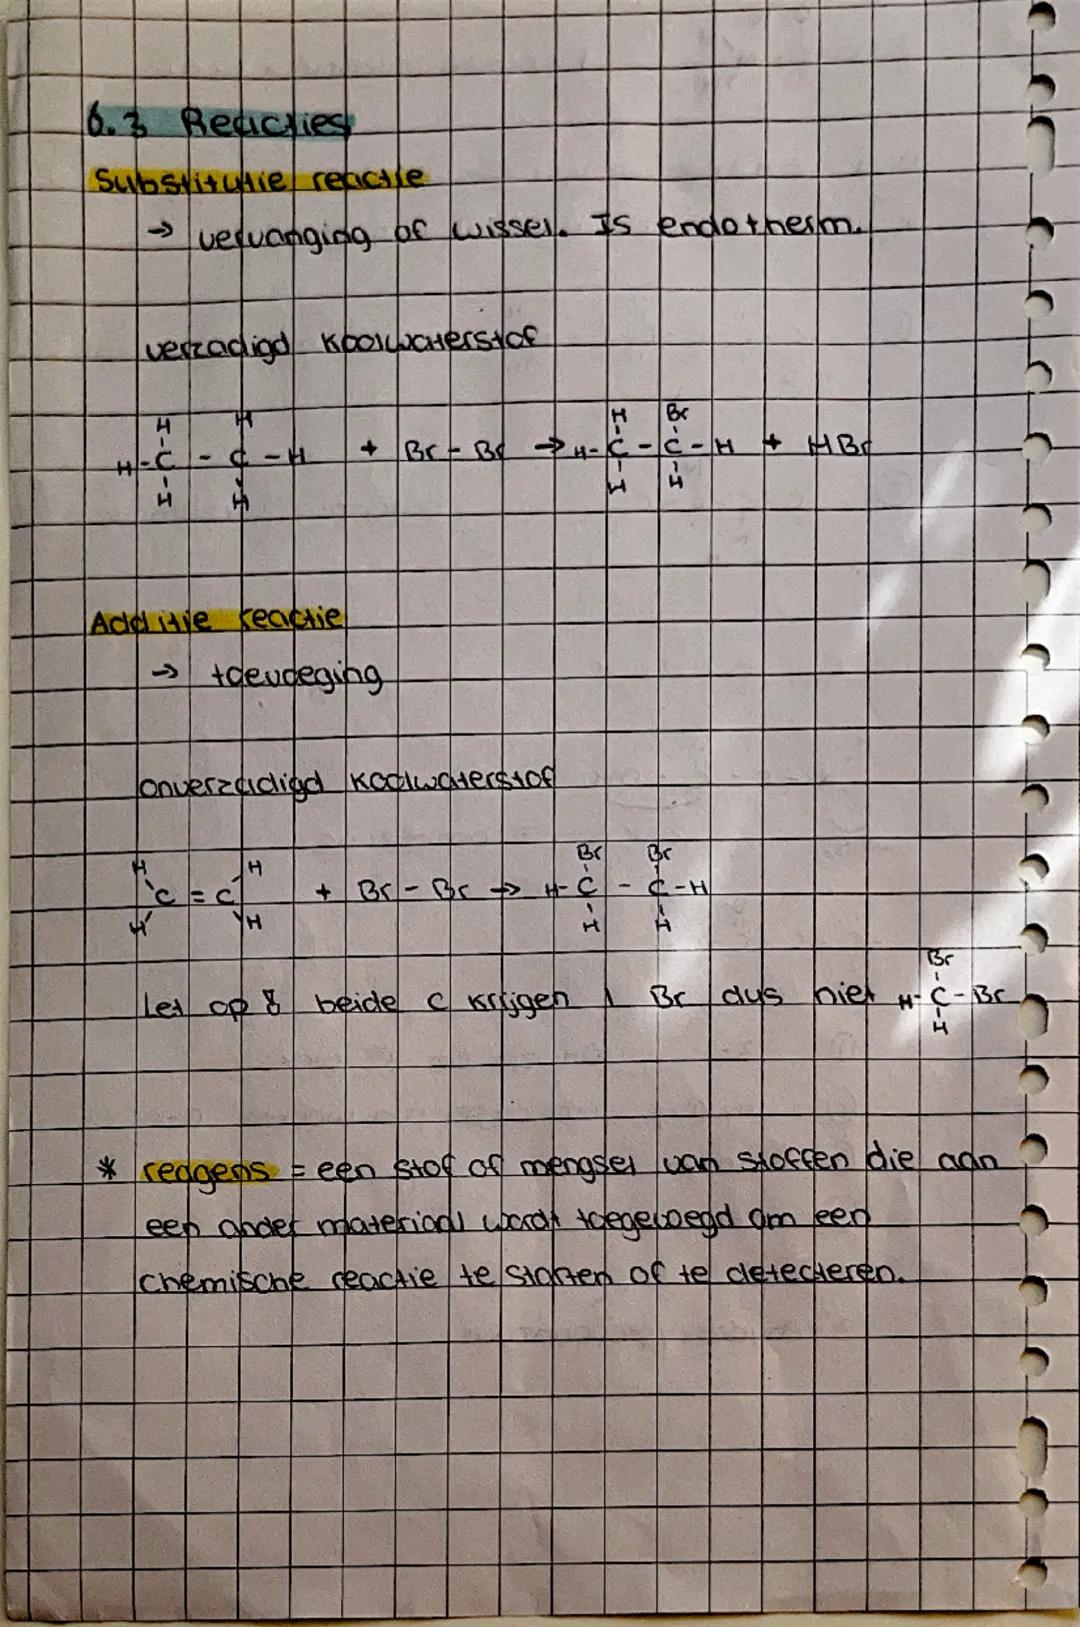 6.3 Reacties
Substitutie reactie
→ vervanging of wissel. Is endotherm.
verzadigd koolwaterstof
H H H Br
H-C - C-H + Br-Br → H-C-C-H + HBr
H H H H
Additie reactie
→ toevoeging
onverzadigd koolwaterstof
H H Br Br
C=C + Br-Br → H-C - C-H
H H H H
Br
Let op! beide C krijgen 1 Br dus niet H-C-Br
H
* reagens = een stof of mengsel van stoffen die aan
een ander materiaal wordt toegevoegd om een
chemische reactie te starten of te detecteren.